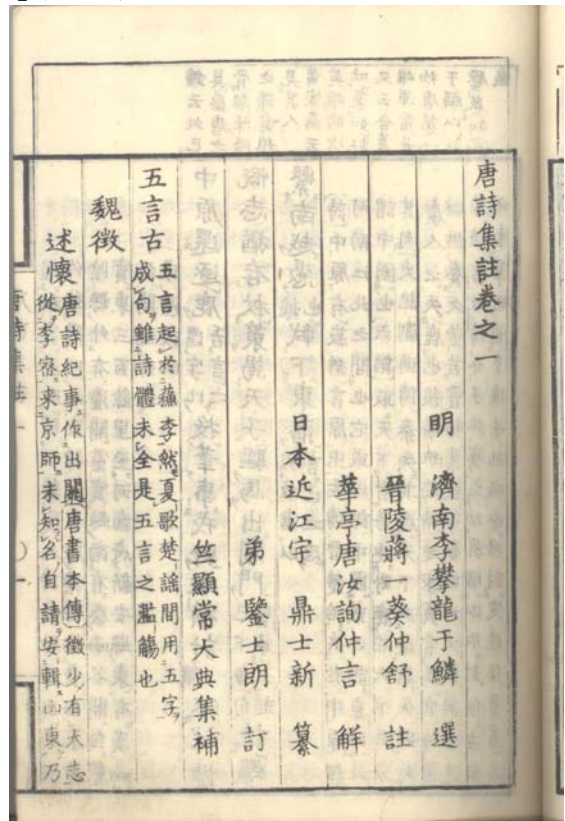 唐詩集註卷之一
明 濟南李攀龍于鱗 選
晉陵蔣 葵仲舒 註
華亭唐汝詢仲言 解
日本近江宇 鼎士新 纂
弟 鑒士朗 訂
竺顯常大典集補
五言古 五言起於蘇李然夏歌楚謠間用五字
成句雖詩體未全是五言之濫觴也
魏徵
述懷 唐詩紀事作出關唐書本傳徵少有大志
從李密来京師未知名自請安輯山東乃
唐詩集註 一